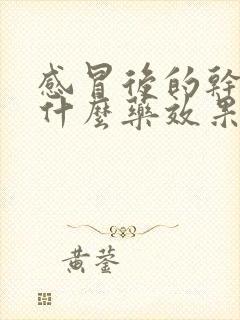 感冒後的幹
什麼藥效果
黃蓥